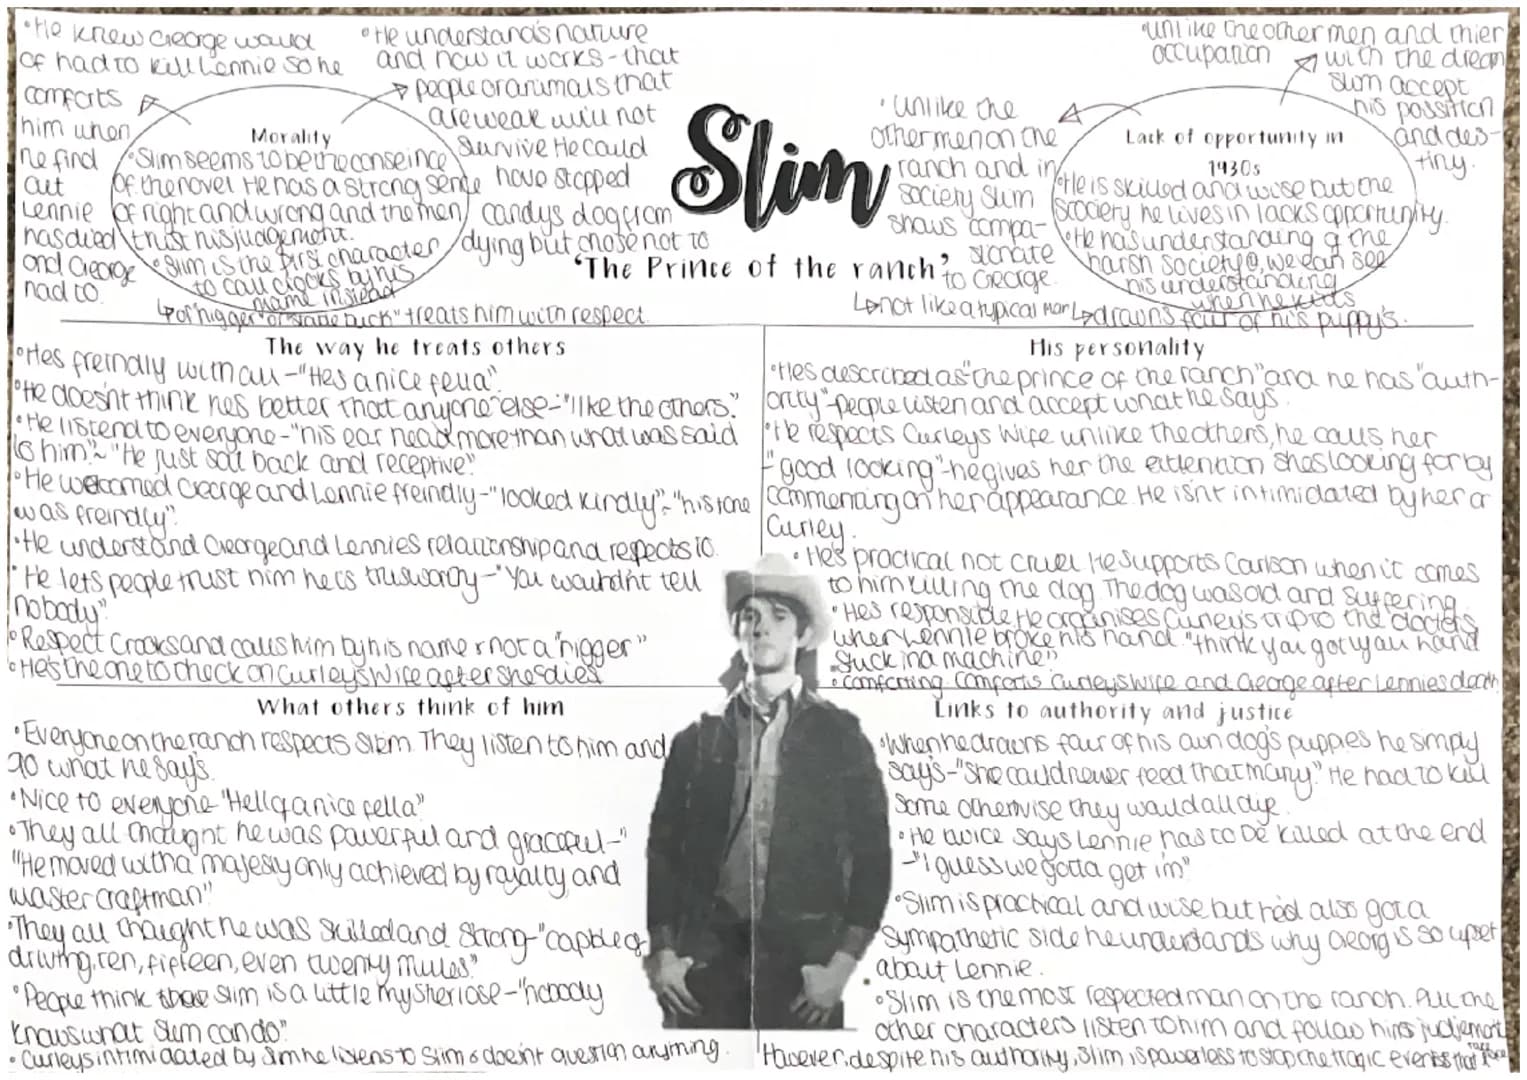 •He knew George would
of had to kill Lennie so he
comforts
him when
he find
out
Lennie
has died
and George
had to.
•He understands nature
and how it works - that
people or animals that
are weak will not
survive He could
have stopped
candys dog from
dying but chose not to
Morality
•Slim seems to be the conseince
of the novel He has a strong sense
of right and wrong and the men
trust his judgement.
•Slim is the first character
to call crooks by his
name instead
↳of "nigger" or "stable buck" treats him with respect.
Slim
'The Prince of the ranch'
•Unlike the
other men on the
ranch and in
society Slim
shows compa-
sionate
to George.
↳not like a typical man
•Unlike the other men and thier
occupation
with the dream
Slim accept
his possition
and des-
tiny.
Lack of opportunity in
1930s
•He is skilled and wise but the
society he lives in lacks opportunity.
•He has understanding of the
harsh society, we can see
his understanding
when he kills
↳drowns four of his puppy's.
The way he treats others
•Hes freindly with all - "Hes a nice fella".
•He doesn't think hes better that anyone else - "like the others."
•He listend to everyone - "his ear head more than what was said
to him" ~ "He just sat back and receptive"
•He welcomed George and Lennie freindly - "looked kindly" ~ "his tone
was freindly".
•He understand George and Lennies relationship and respects it.
•He lets people trust him he is trusworthy - "You wouldn't tell
nobody"
•Respect Crooks and calls him by his name & not a "nigger"
•He's the one to check on Curleys Wife after she dies
His personality
•Hes described as "the prince of the ranch" and he has "auth-
ority" - people listen and accept what he says.
•He respects Curleys Wife unlike the others, he calls her
-"good looking" - he gives her the attention shes looking for by
commenting on her appearance. He isnt intimidated by her or
Curley.
•He's practical not cruel He supports Carlson when it comes
to him killing the dog. The dog was old and suffering.
•Hes responsible He organises Curleys trip to the doctors
when Lennie broke his hand. "think you got you hand
stuck in a machine"
•comforting. Comforts Curleys wife and George after Lennies death
What others think of him
•Everyone on the ranch respects Slim They listen to him and
go what he say's.
•Nice to everyone "Hell of a nice fella"
•They all thought he was powerful and graceful - "
"He moved with a majesty only achieved by royalty and
master craftman"
•They all thought he was skilled and strong - "capble of
driving, ten, fifteen, even twenty mules."
•People think Slim is a little mysteriose - "nobody
knows what Slim can do".
•Curleys intimidated by Slim he listens to Slim & doesn't question anything.
Links to authority and justice
•When he drowns four of his own dog's puppies he simply
says - "She could never feed that many." He had to kill
some otherwise they would all die.
•He twice says Lennie has to be killed at the end
- "I guess we gotta get im"
•Slim is practical and wise but also got a
sympathetic side he understands why Georg is so upset
about Lennie.
•Slim is the most respected man on the ranch. All the
other characters listen to him and follow hims judjemat
However, despite his authority, Slim is powerless to stop the tragic events that take place